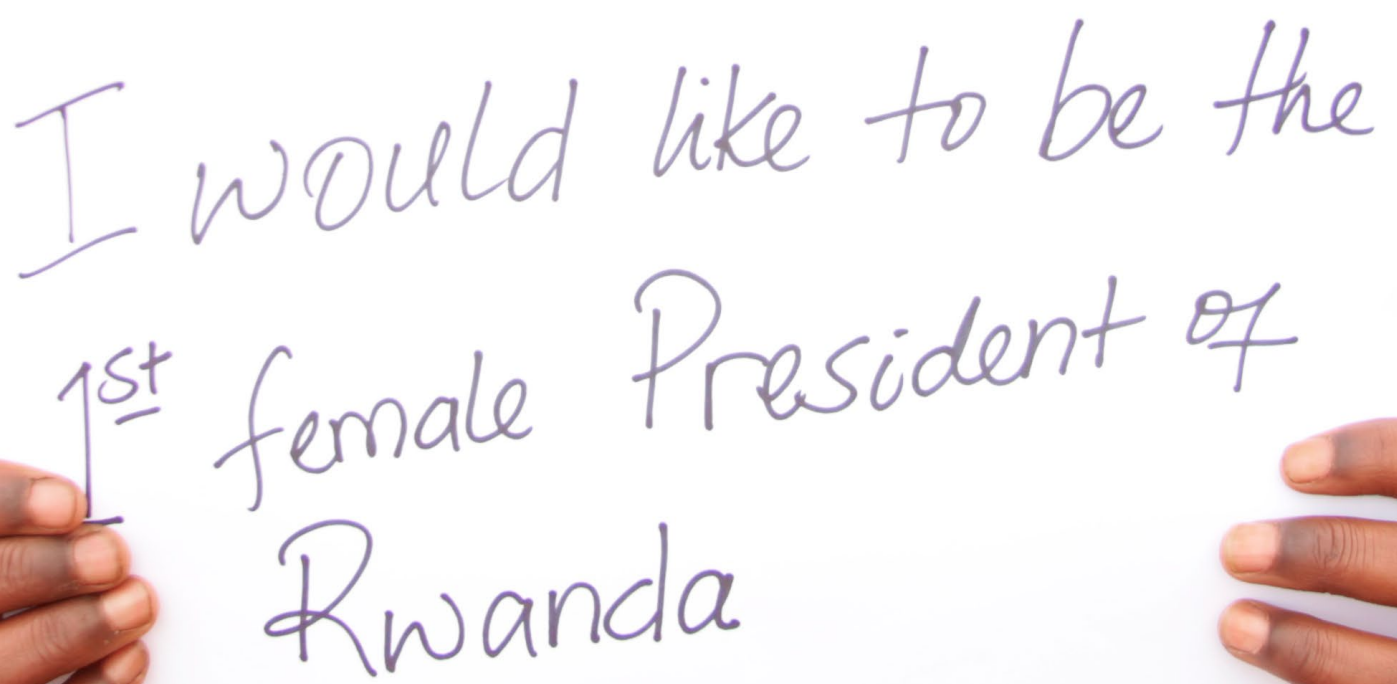 I would like to be the
1st female President of
Rwanda